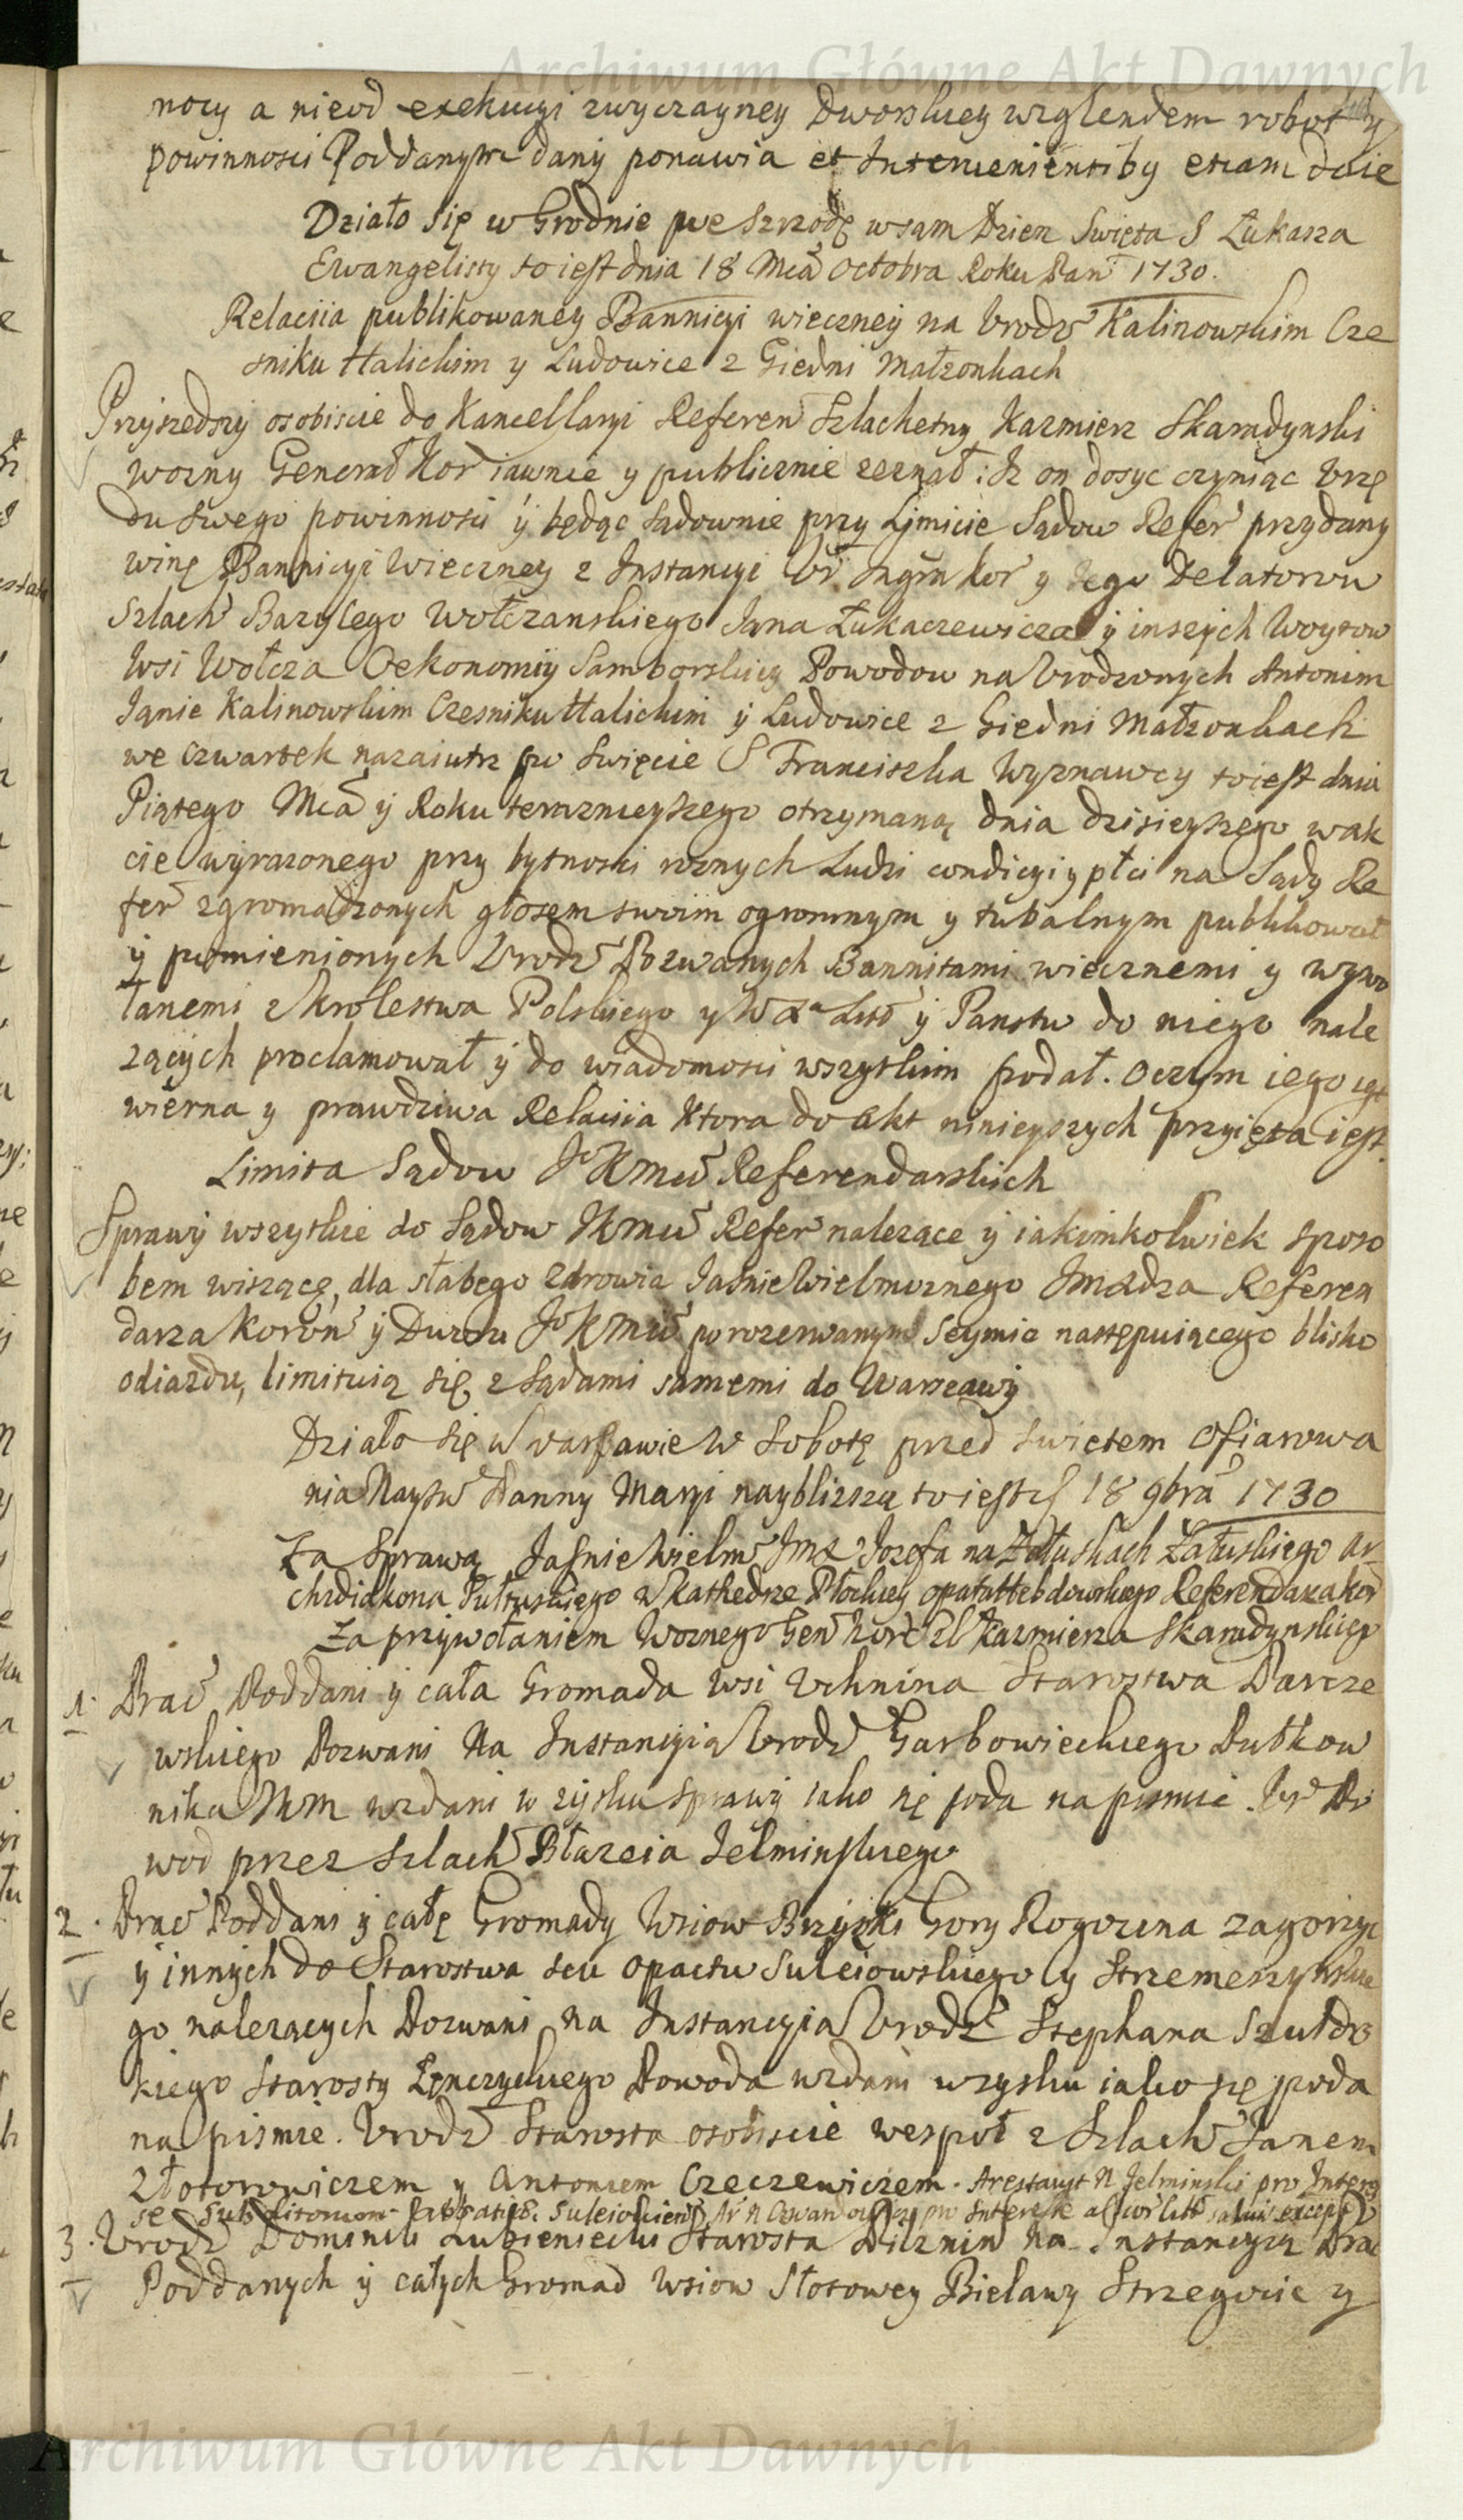 Archiwum Główne Akt Dawnych
nocy a nieod exekucyi zwyczayney Dworskiey wzglendem robot y
powinnosci Poddanym dany ponawia et Intervenientiby etiam daie
Działo się w Grodnie we Szrzodę w sam Dzien Swięta S Łukasza
Ewangelisty to iest dnia 18 Mca Octobra Roku Pan 1730.
Relaciia publikowaney Bannicyi wieczney na Urodz Kalinowskim Cze
sniku Halickim y Ludowice z Giedni Małzonkach
Przyszedszy osobiscie do Kancellaryi Referen Szlachetny Kazmierz Skaradynski
wozny Generał Kor iawnie y publicznie zeznał: Iz on dosyc czyniąc Urzę
du swego powinnosci y będąc sądownie przy Limicie Sądow Refer przydany
winę Bannicyi Wieczney z Instancyi Ur Ingra Kor y Iego Delatorow
Szlach Bazylego Wołczanskiego Iana Łukaczewicza y inszych Woytow
Wsi Wołcza Oekonomiy Samborskiey Powodow na Urodzonych Antonim
Ianie Kalinowskim Czesniku Halickim y Ludowice z Giedni Małzonkach
we czwartek nazaiutrz po Swięcie S Franciszka Wyznawcy to iest dnia
Piątego Mca y Roku terazneyszego otrzymaną dnia dzisieyszego w ak
cie wyrazonego przy bytnosci roznych Ludzi condicyi y płci na Sądy Re
fer zgromadzonych głosem swoim ogromnym y tubalnym publikował
y pomienionych Urodz Pozwanych Bannitami wiecznemi y wywo
łanemi z Krolestwa Polskiego y W X Litt y Panstw do niego nale
zących proclamował y do wiadomosci wszystkim podał. Oczym iego iest
wierna y prawdziwa Relaciia Ktora do Akt ninieyszych przyięta iest.
Limita Sądow J K Mci Referendarskich
Sprawy wszystkie do Sądow JKMci Refer nalezące y iakimkolwiek sposo
bem wiszącę, dla słabego zdrowia IasnieWielmoznego Jmxdza Referen
darza Koron y Dworu J K Mci po rozerwanym Seymie następuiącego blisko
odiazdu, limituią się z Sądami samemi do Warszawy
Działo się w Warszawie w Sobotę przed swiętem Ofiarowa
nia Nayśw Panny Maryi nayblizszą to iest 18 9bra 1730
Za Sprawą JasnieWielm Jmx Jozefa na Załuskach Załuskiego Ar
chidiakona Pułtuskiego w Kathedrze Płockiey opata Hebdowskiego Referendarza Kor
Za przywołaniem Woznego Gen Kor Szl Kazmierza Skaradynskiego
1. Prac Poddani y cała Gromada Wsi Uchnina Starostwa Parcze
wskiego Pozwani Na Instancyią Urodz Garbowieckiego Pułkow
nika JKM wzdani w zysku sprawy iako się poda na pismie. Ur Po
wod przez Szlach Błazeia Jelminskiego
2. Prac Poddani y całę Gromady Wsiow Brzyski Gory Rogozina Zagorzyc
y innych do Starostwa seu Opactw Suleiowskiego y Strzemeszynskie
go nalezących Pozwani na Instancyia Urodz Stephana Szułdrz
kiego Starosty Łęnczyckiego Powoda wzdani w zysku iako się poda
na pismie. Urodz Starosta osobiscie wespoł z Szlach Janem
Złotorowiczem y Antonim Czeczewiczem. Arestavit N Jelminski pro Interes
se Subditorum Abbatiae Suleiovien Ar N pro Interesse salvis except
3. Urodz Dominik Łubieniecki Starosta Pilznin Na Instancyią Prac
Poddanych y całych Gromad Wsiow Słotowey Bielawy Strzegocic y
Archiwum Główne Akt Dawnych